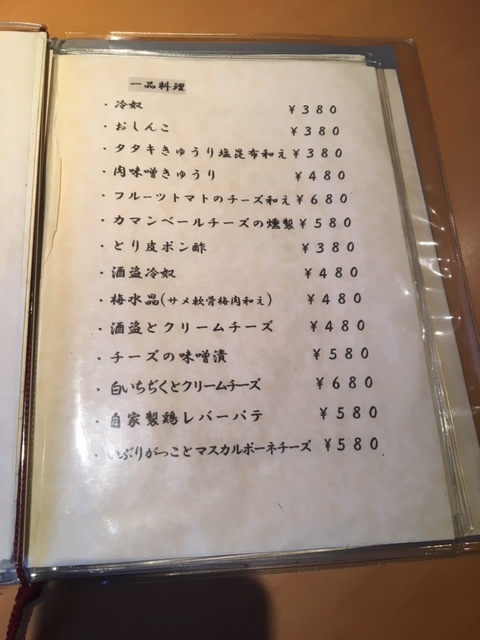 一品料理
・冷奴 ¥380
・おしんこ ¥380
・タタキきゅうり塩昆布和え ¥380
・肉味噌きゅうり ¥480
・フルーツトマトのチーズ和え ¥680
・カマンベールチーズの燻製 ¥580
・とり皮ポン酢 ¥380
・酒盗冷奴 ¥480
・梅水晶(サメ軟骨梅肉和え) ¥480
・酒盗とクリームチーズ ¥480
・チーズの味噌漬 ¥580
・白いちぢくとクリームチーズ ¥680
・自家製鶏レバーパテ ¥580
・いぶりがっことマスカルポーネチーズ ¥580